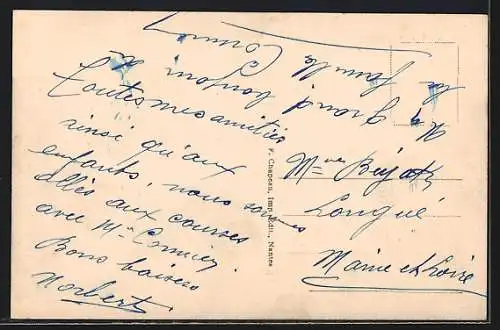 Toutes mes amitiés
ainsi qu'aux
enfants, nous sommes
allés aux courses
avec Mr Cormier
Bons baisers
Norbert
F. Chapeau, Imp.-Édit., Nantes
Longué
Maine et Loire
grand bonjour
la famille
Cormier